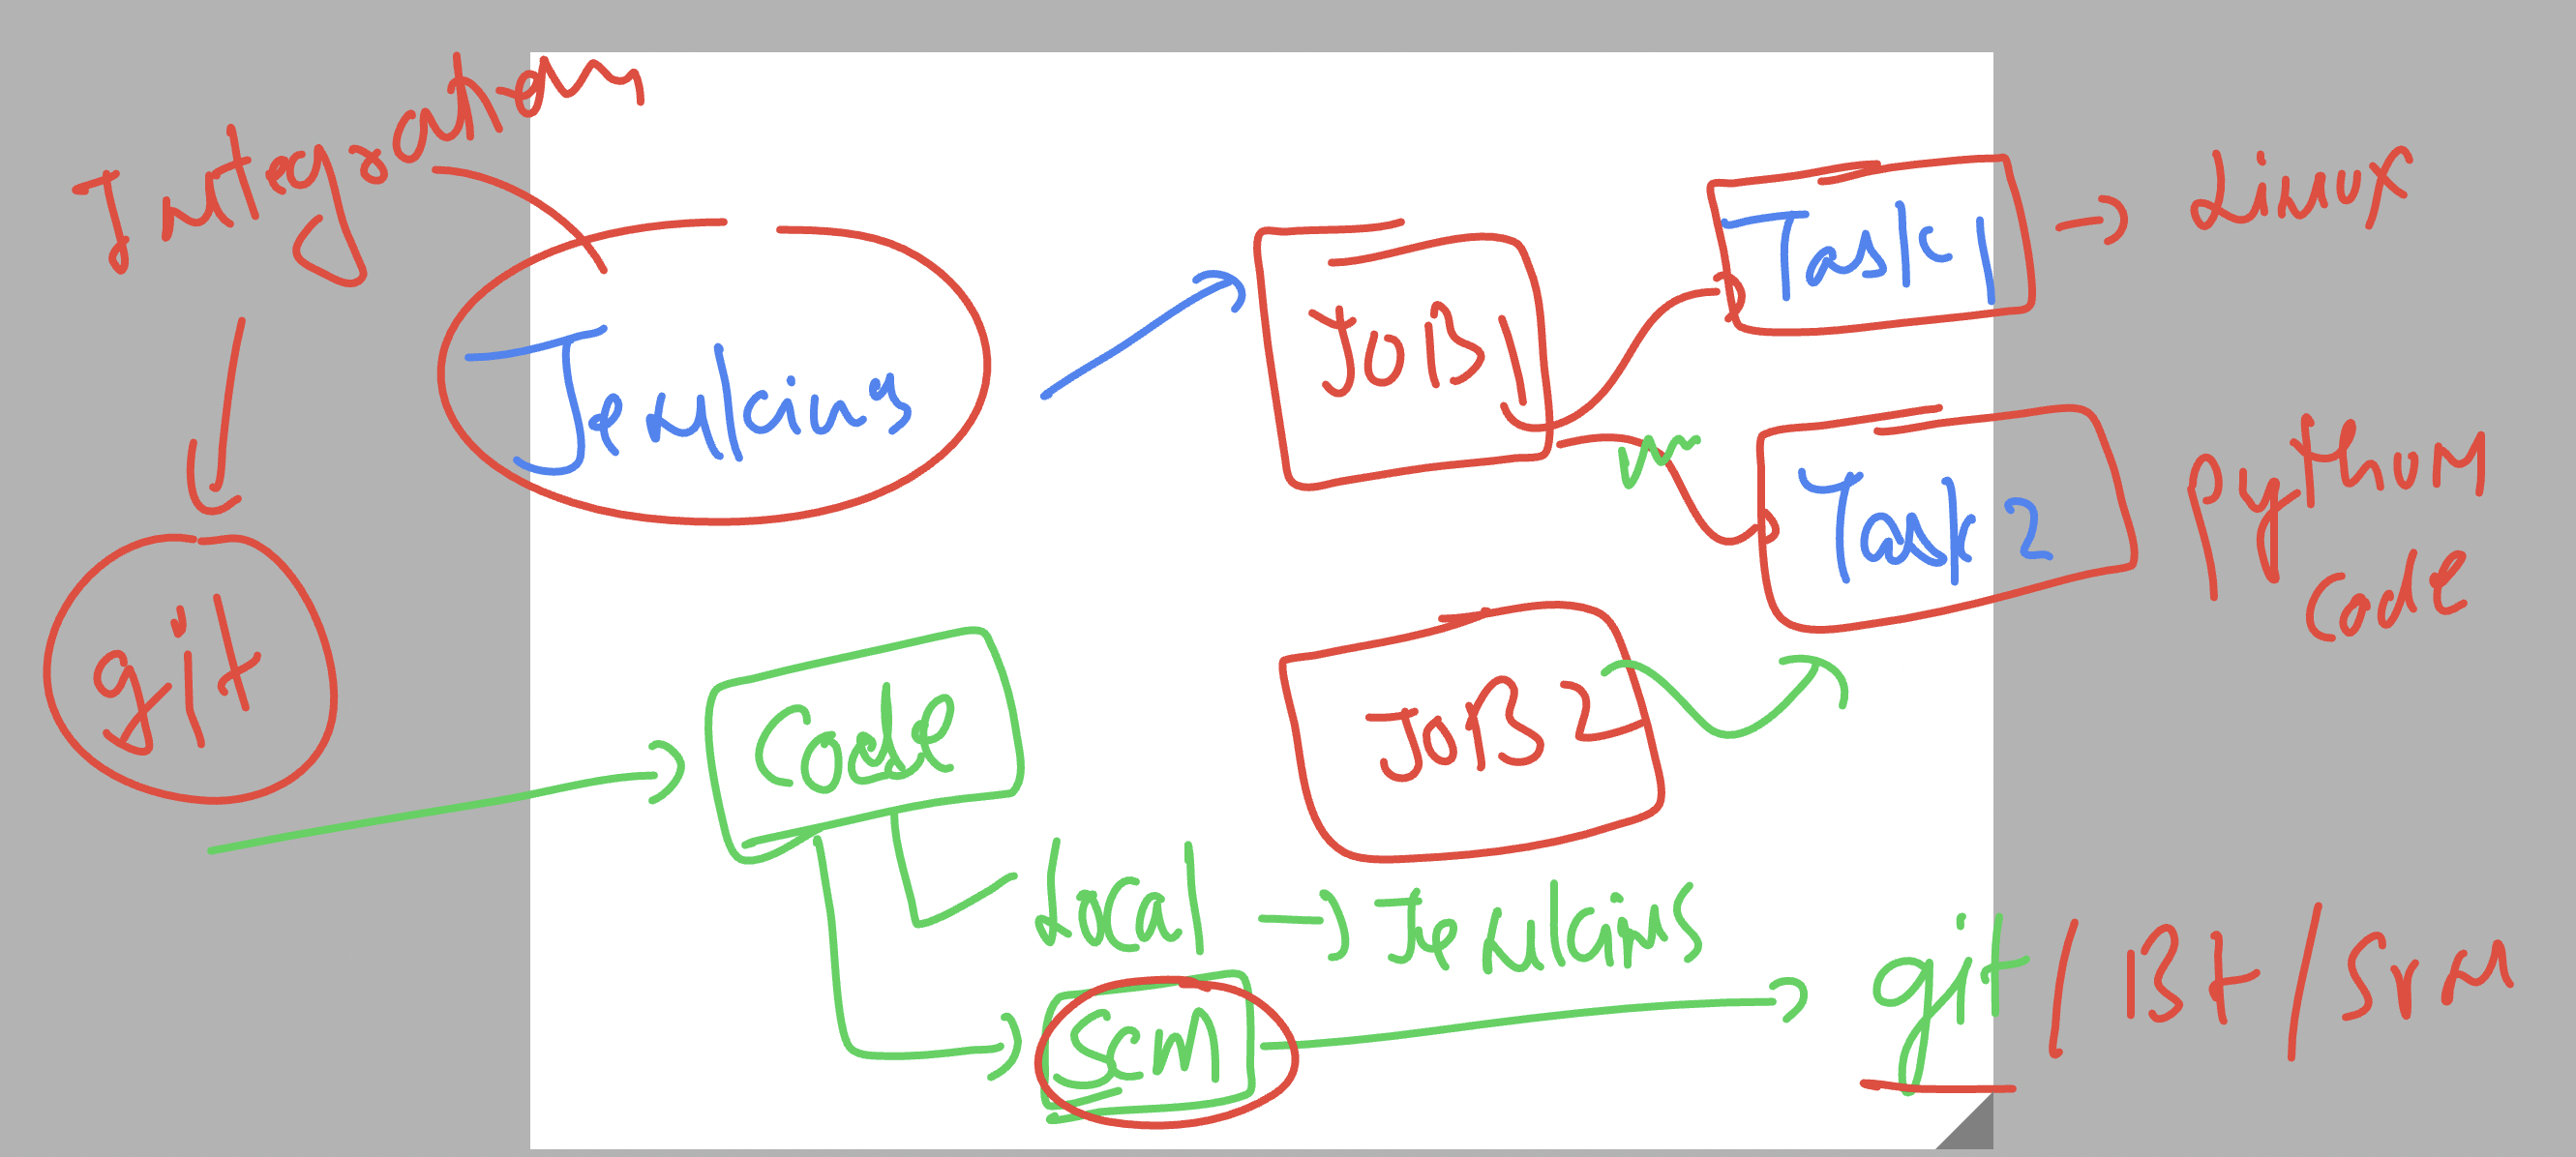 Integration
Jenkins
JOB1
Task 1
Linux
Task 2
Python
Code
git
Code
JOB 2
Local → Jenkins
SCM
git / Bt /